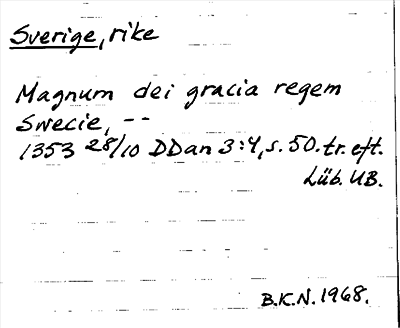 Sverige, rike
Magnum dei gracia regem
Swecie, --
1353 28/10 DDan 3:4, s. 50. tr. eft.
Lüb. UB.
B.K.N. 1968.